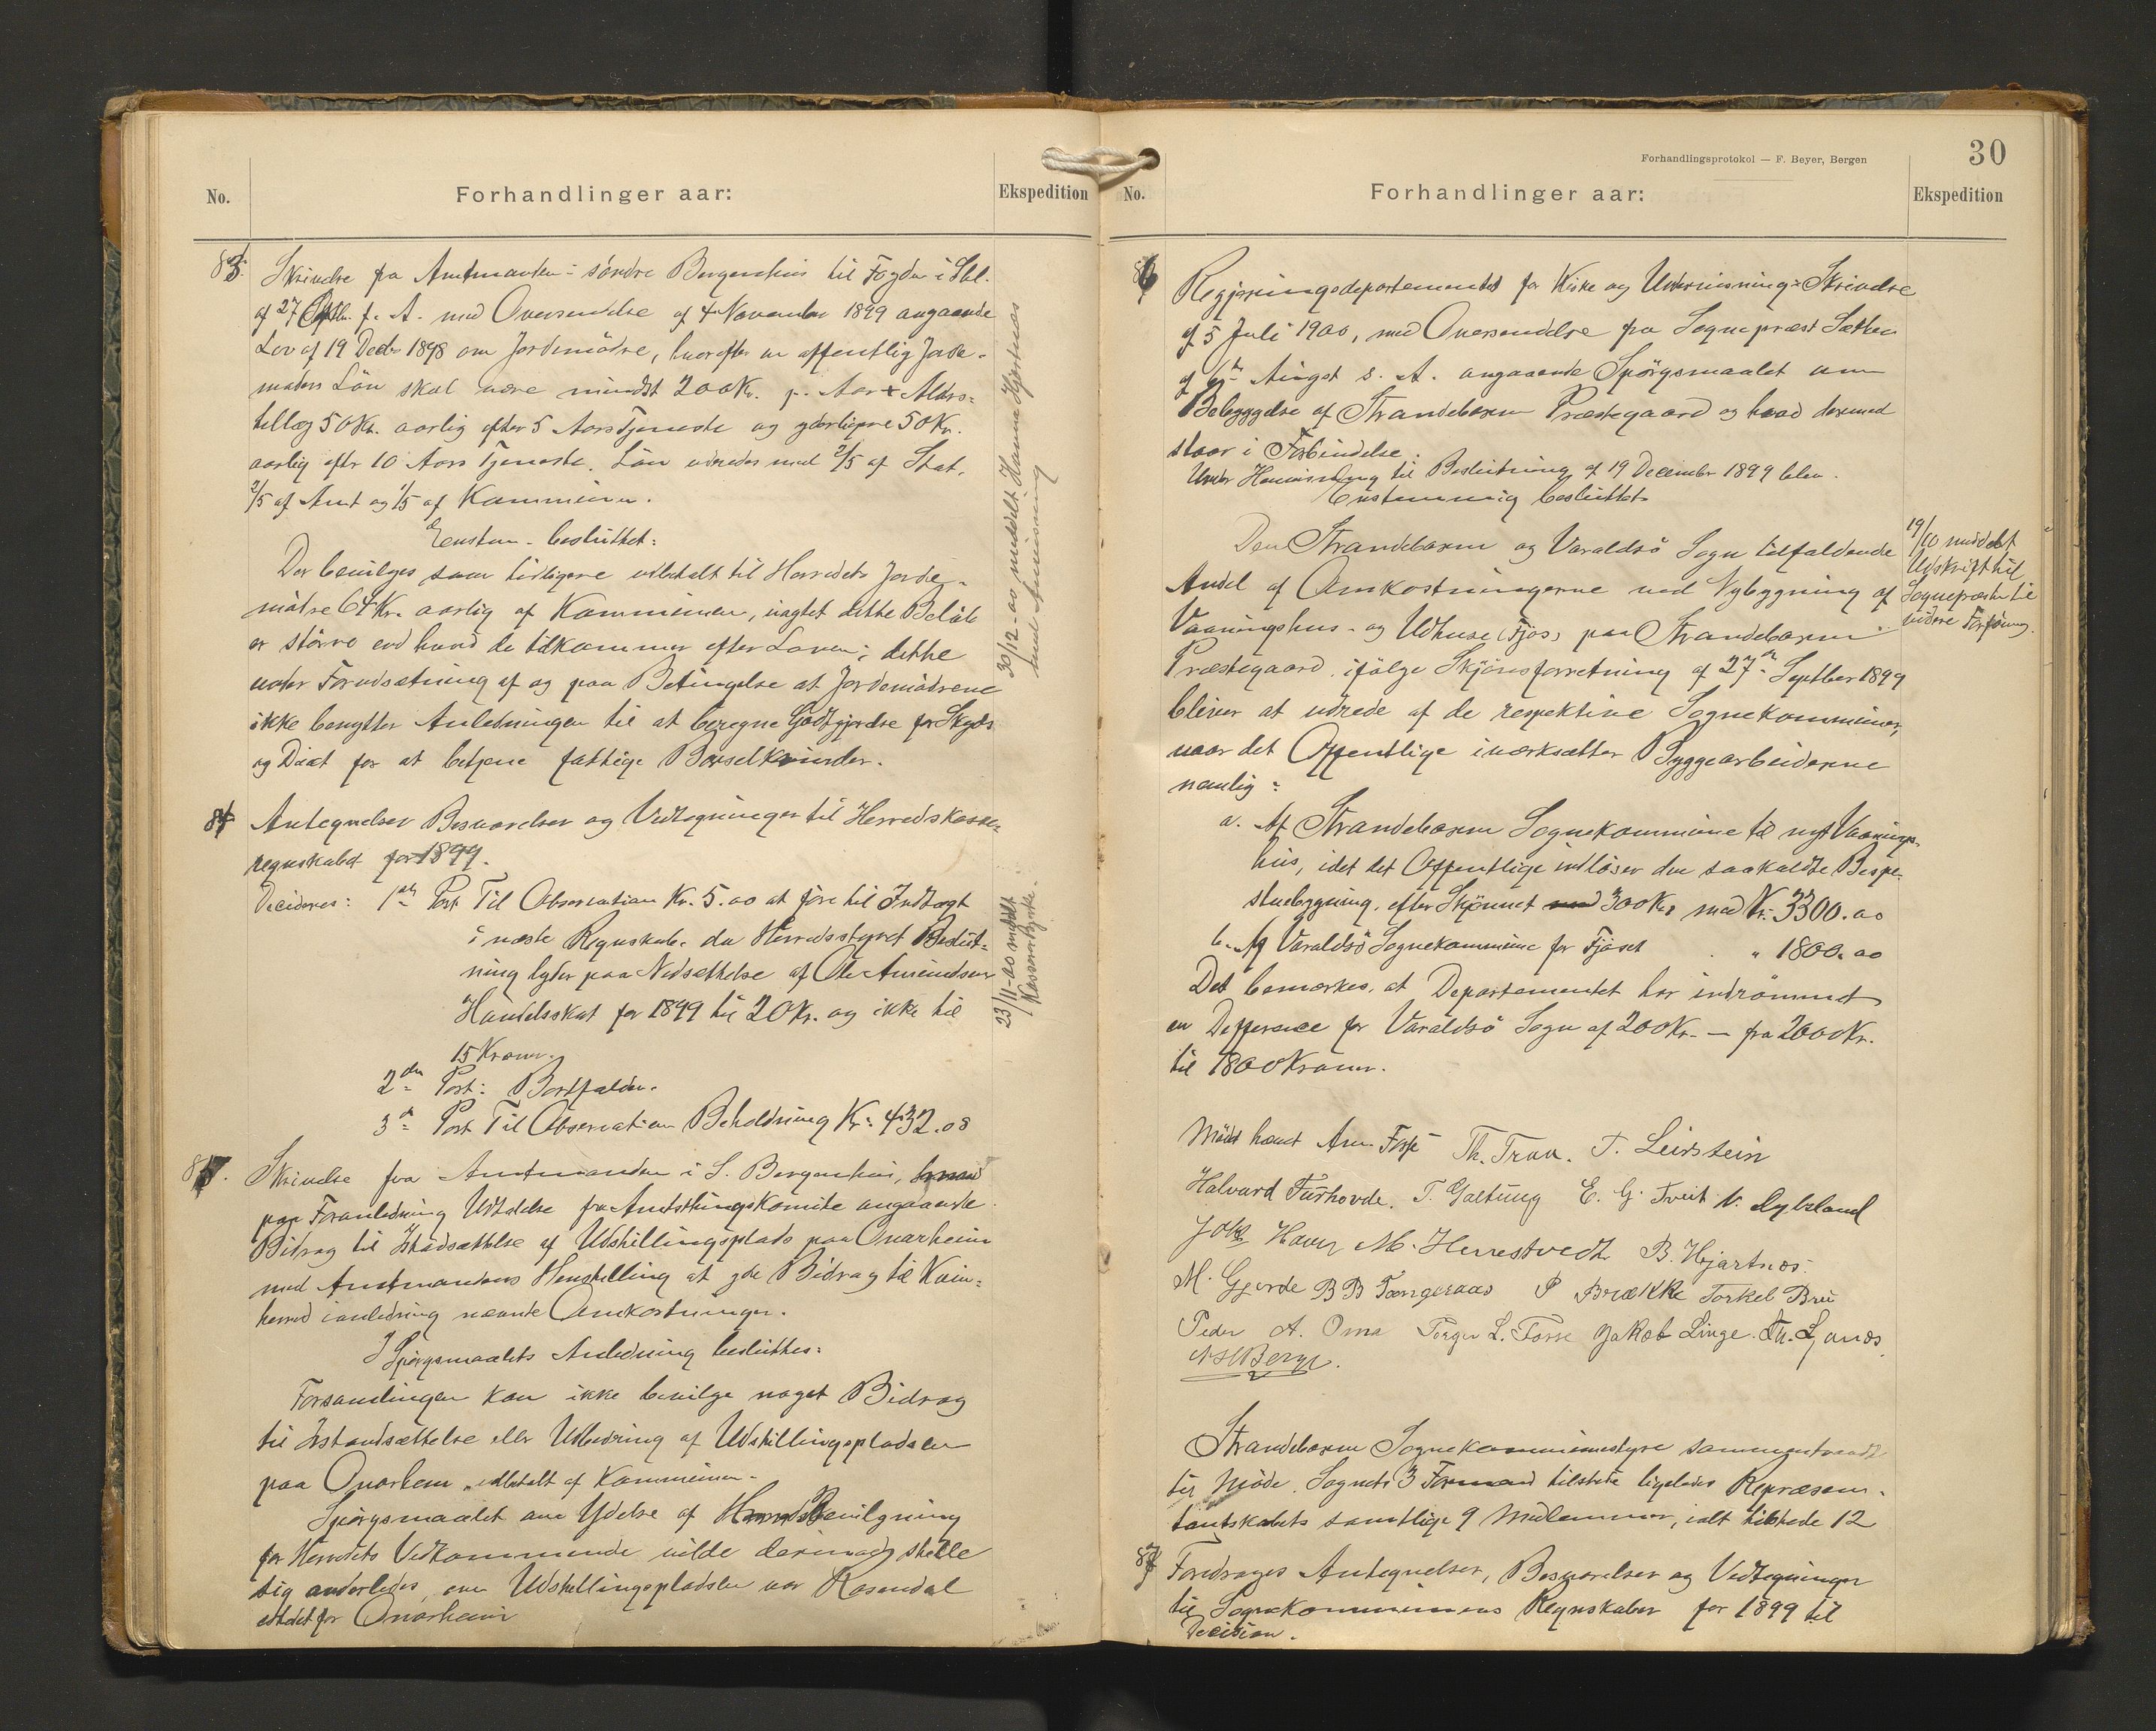 No.
Forhandlinger aar:
Ekspedition
83.
Skrivelse fra Amtmanden i söndre Bergenhus til Fogden i S
af 27 f. A. med Oversendelse af 4 November 1899 angaaende
Lov af 19 Decbr 1898 om Jordemödre, hvorefter en offentlig Jorde-
moders Lön skal være mindst 200 Kr. pr. Aar + Alders-
tillæg 50 Kr. aarlig efter 5 Aars Tjeneste og yderligere 50 Kr.
aarlig eftr 10 Aars Tjeneste. Lön udredes med 2/5 af Stat,
2/5 af Amt og 1/5 af Kommunen.
Eenstem. besluttet:
Der bevilges som tidligere udbetalt til Herredets Jorde-
mödre 64 Kr. aarlig af Kommunen, uagtet dette Belöb
er större end hvad de tilkommer efter Loven; dette
under Forudsætning af og paa Betingelse at Jordemödrene
ikke benytter Anledningen til at beregne Godtgjörelse for Skyds
og Diæt for at betjene fattige Barselkvinder.
30/12-00 meddelt Hanna Hjertnæs
med Anvisning
84
Antegnelser Besvarelser og Vedtegninger til Herredskasse-
regnskabet for 1899.
Decideres: 1ste Post Til Observation Kr. 5.00 at före til Indtægt
i næste Regnskab, da Herredsstyret Beslut-
ning lyder paa Nedsættelse af Ole Amundsens
Handelsskat for 1899 til 20 Kr. og ikke til
15 Kroner.
2den Post: Bortfalder.
3die Post Til Observation Beholdning Kr: 432.08
23/11-00 meddelt
Kasserer Byrke.
85.
Skrivelse fra Amtmanden i S. Bergenhus,
paa Foranledning Udtalelse fra Amtstthingskomite angaaende
Bidrag til Istadsættelse af Udstillingsplads paa Onarheim
med Amtmandens Henstilling at yde Bidrag til Kvin-
herred i anledning nævnte Omkostninger.
I Spörgsmaalets Anledning besluttes:
Forsamlingen kan ikke bevilge noget Bidrag
til Istandsættelse eller Udbedring af Udstillingspladsen
paa Onarheim, udbetalt af Kommunen.
Spörgsmaalet om Ydelse af HerredsBevilgning
for Herredets Vedkommende vilde derimod stille
sig anderledes, om Udstillingspladsen var Rosendal
istedetfor Onarheim
Forhandlingsprotokol — F. Beyer, Bergen
30
No.
Forhandlinger aar:
Ekspedition
86
Regjeringsdepartementet for Kirke og Undervisnings Skrivelse
af 5 Juli 1900, med Oversendelse fra Sognepræst Sæther
af 6te August s. A. angaaende Spörgsmaalet om
Bebyggelse af Strandebarm Præstegaard og hvad dermed
staar i Forbindelse.
Under Henvisning til Beslutning af 19 December 1899 blev
Enstemmig besluttet
Den Strandebarm og Varaldsö Sogn tilfaldende
Andel af Omkostningerne ved Nybygning af
Vaaningshus- og Udhuse (Fjös) paa Strandebarm
Præstegaard, ifölge Skjönsforretning af 27de Septber 1899
bliver at udrede af de respektive Sognekommuner,
naar det Offentlige iværksætter Byggearbeiderne
nemlig:
19/10 meddelt
Udskrift til
Sognepræsten til
videre Forföining.
a. Af Strandebarm Sognekommune til nyt Vaanings-
hus, idet det Offentlige indlöser den saakaldte Bispe-
stuebygning, efter Skjönnet 300 Kr, med Kr. 3300.00
b. Af Varaldsö Sognekommune for Fjöset " 1800.00
Det bemærkes, at Departementet har indrömmet
en Defference for Varaldsö Sogn af 200 Kr. — fra 2000 Kr.
til 1800 Kroner.
Mödt havde Amu Fosse Th. Traa. T. Leirstein
Halvard Furhovde. T. Galtung E. G. Tveit N. Dybsland
Joh Haver M. Herrestvedt B. Hjartnæs.
M. Gjerde B B Tangeraas P Brække Torkel Bru
Peder A. Oma Torger L. Fosse Jakob Linge. Th. Ljones
N H Berge.
Strandebarm Sognekommunestyre sammentraadt
til Möde. Sognets 3 Formænd tilstede ligeledes Repræsen-
tantskabets samtlige 9 Medlemmer, ialt tilstede 12
87
Foredroges Antegnelser, Besvarelser og Vedtegninger
til Sognekommunens Regnskaber for 1899 til
Decision.